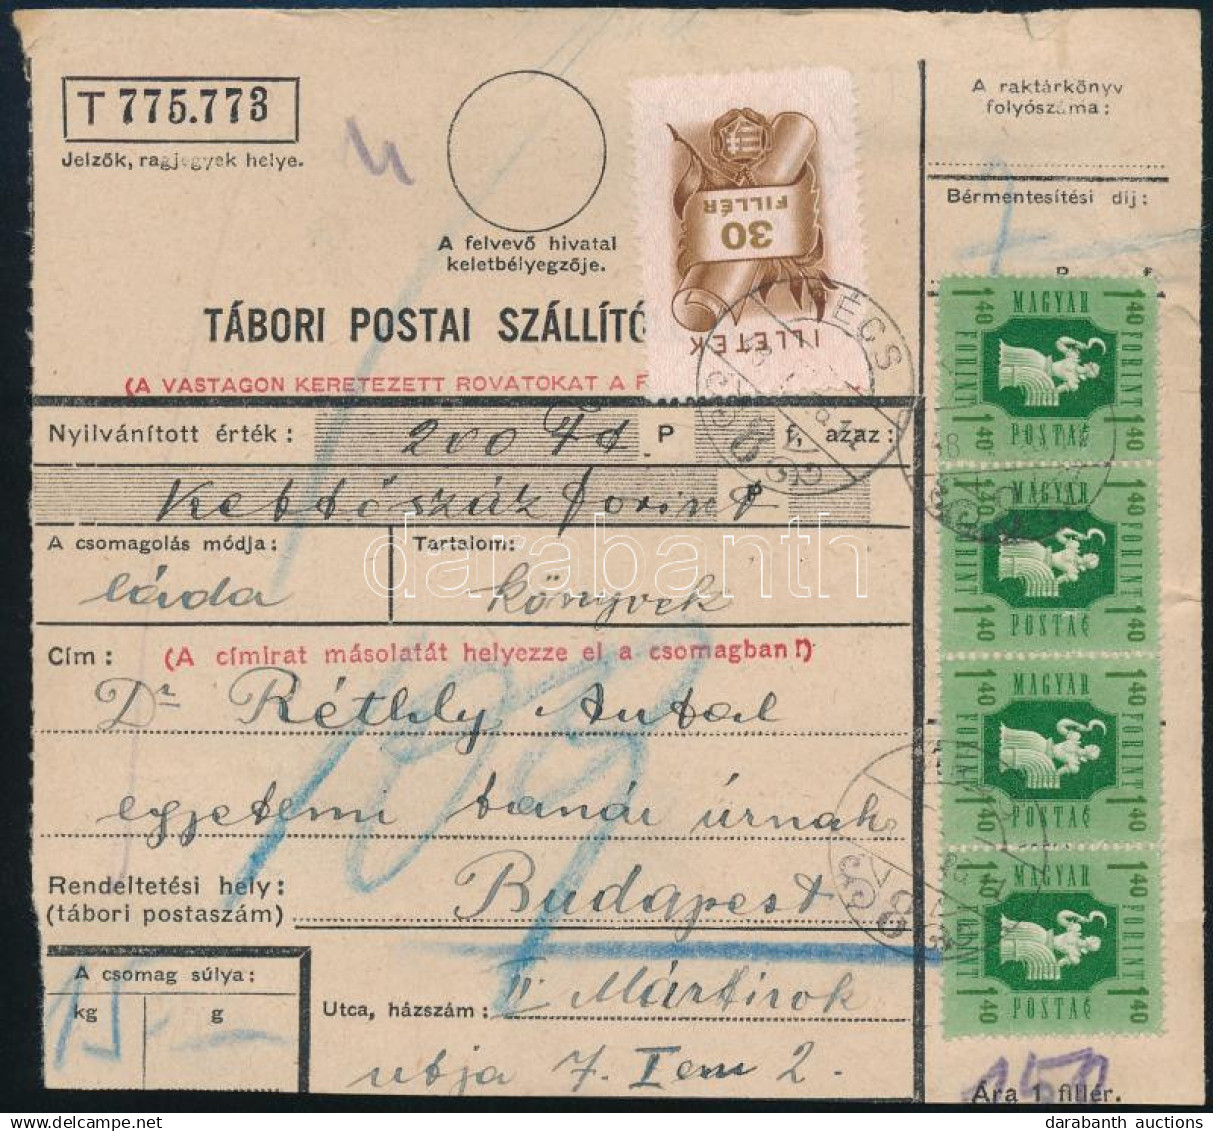 T 775.773
Jelzők, ragjegyek helye.
A felvevő hivatal
keletbélyegzője.
30
FILLÉR
ILLETÉK
A raktárkönyv
folyószáma:
Bérmentesítési díj:
P f.
TÁBORI POSTAI SZÁLLÍTÓ
(A VASTAGON KERETEZETT ROVATOKAT A F
PÉCS
Nyilvánított érték: 200 Ft P f, azaz:
Kettőszáz forint P
A csomagolás módja: Tartalom:
láda könyvek
Cím: (A címirat másolatát helyezze el a csomagban!)
Dr Réthly Antal
egyetemi tanár úrnak
Rendeltetési hely:
(tábori postaszám)
Budapest
A csomag súlya:
kg g
15
Utca, házszám: II Mártirok
utja 7. I em 2.
MAGYAR
POSTA
1 40 FORINT 1 40
MAGYAR
POSTA
1 40 FORINT 1 40
MAGYAR
POSTA
1 40 FORINT 1 40
MAGYAR
POSTA
1 40 FORINT 1 40
150
Ára 1 fillér.
darabanth
darabanth auctions